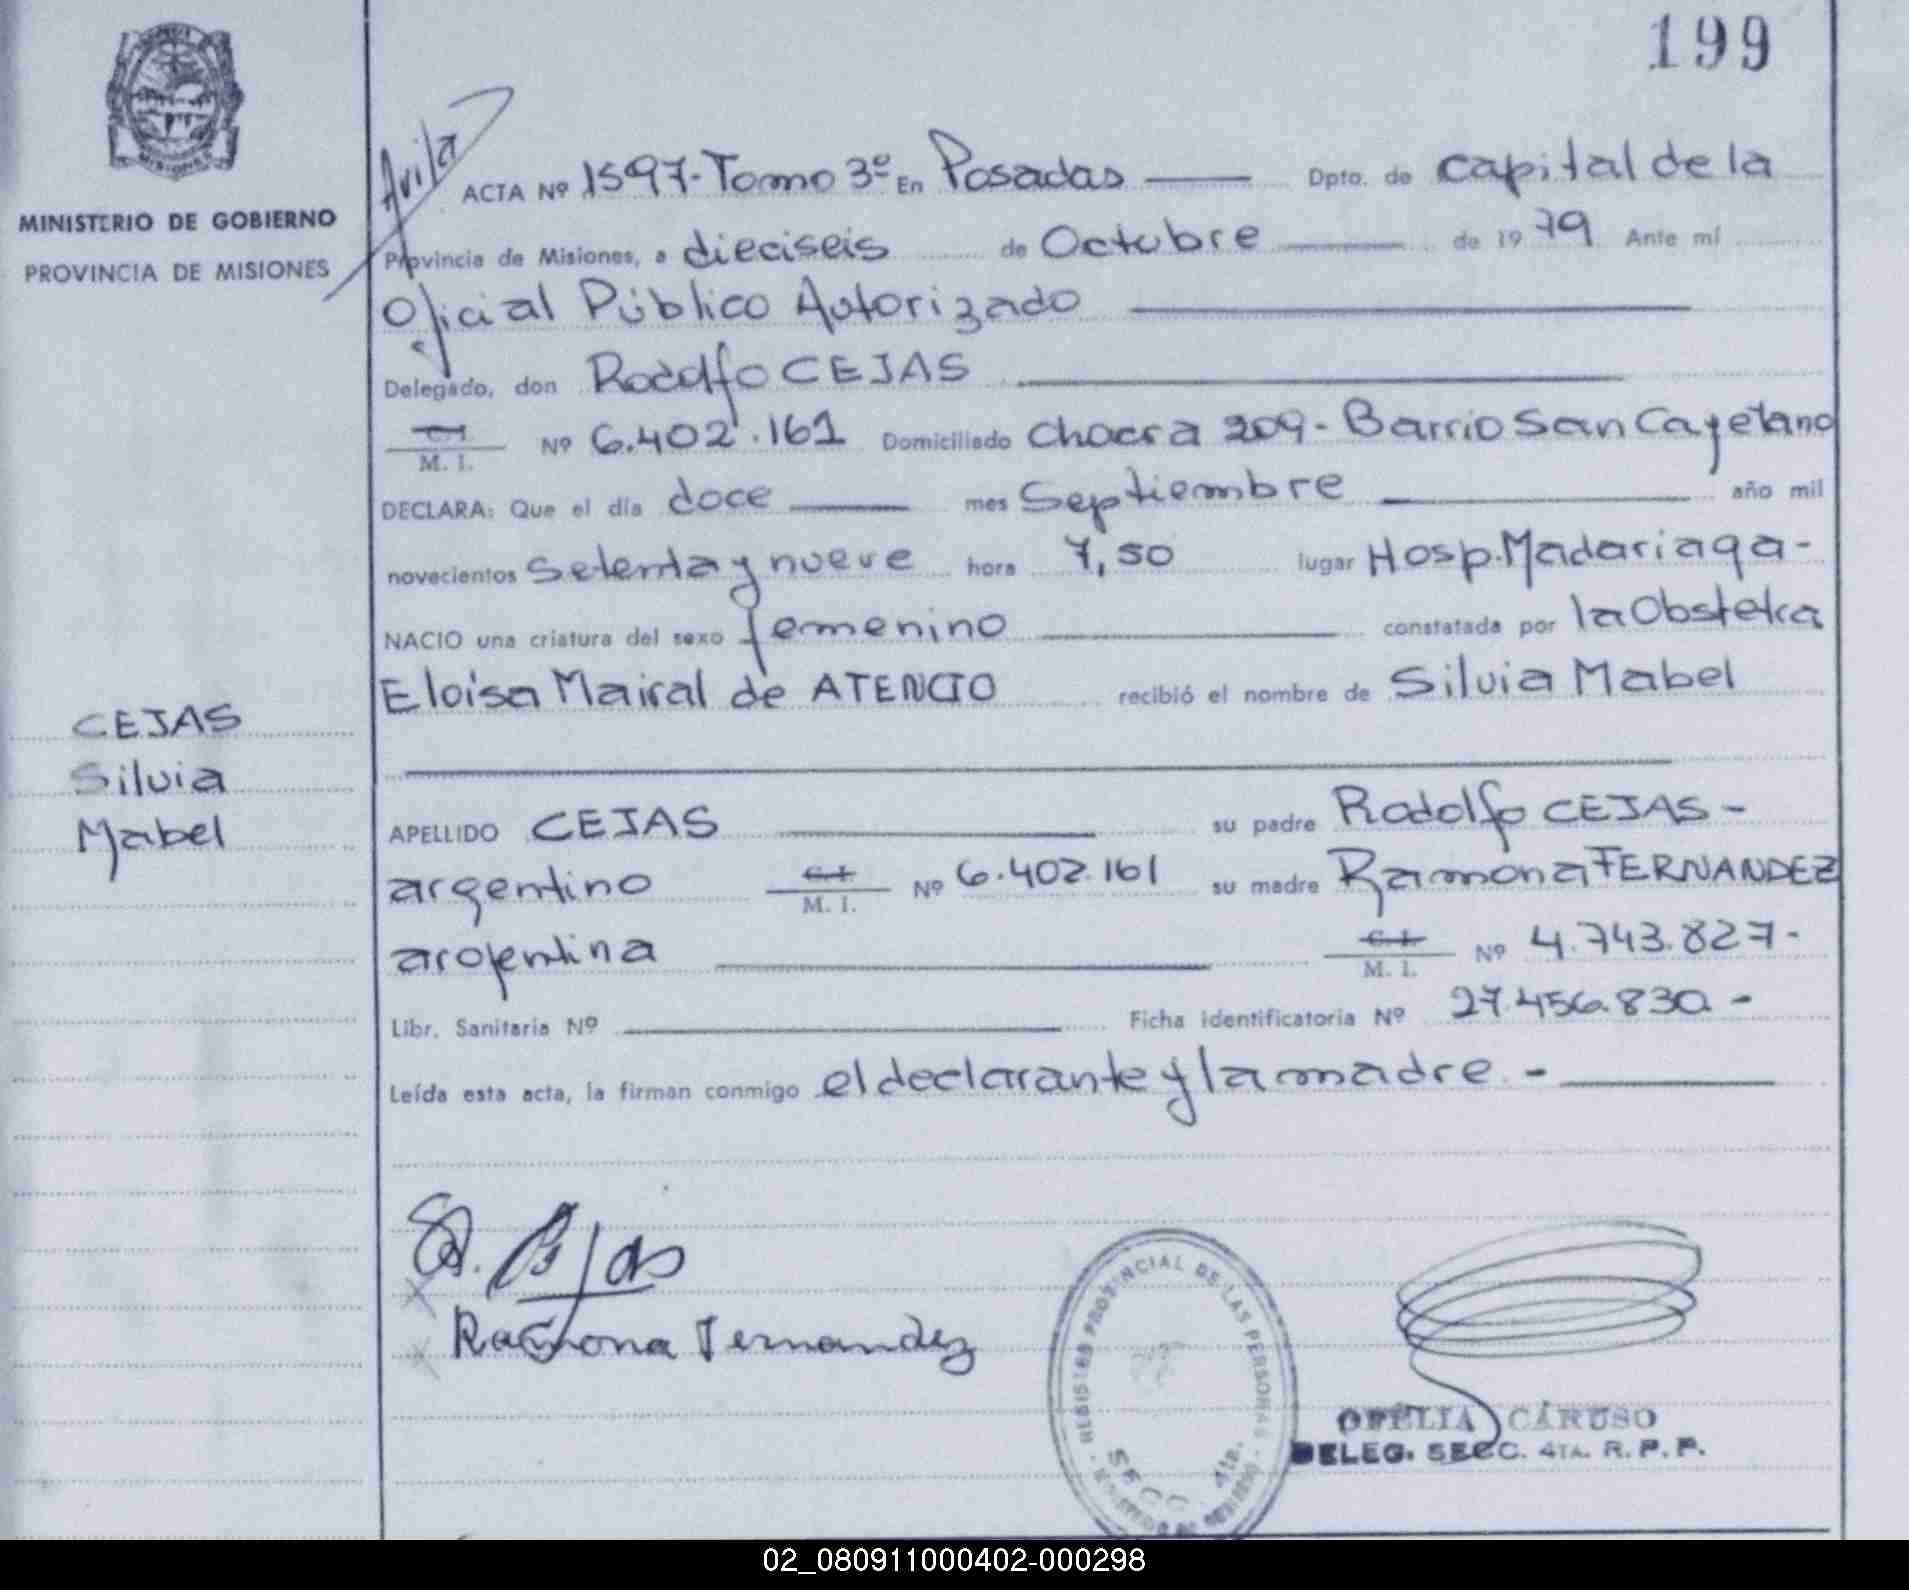 199
MISIONES
MINISTERIO DE GOBIERNO
PROVINCIA DE MISIONES
CEJAS
Silvia
Mabel
Avila
ACTA Nº 1597-Tomo 3º En Posadas Dpto. de Capital de la
Provincia de Misiones, a dieciseis de Octubre de 1979 Ante mí
Oficial Público Autorizado
Delegado, don Rodolfo CEJAS
C.I.
M. I. Nº 6.402.161 Domiciliado Chacra 209 - Barrio San Cayetano
DECLARA: Que el día doce mes Septiembre año mil
novecientos setenta y nueve hora 7,50 lugar Hosp. Madariaga -
NACIO una criatura del sexo femenino constatada por la Obstetra
Eloísa Mairal de ATENCIO recibió el nombre de Silvia Mabel
APELLIDO CEJAS su padre Rodolfo CEJAS -
argentino C.I. M. I. Nº 6.402.161 su madre Ramona FERNANDEZ
argentina C.I. M. I. Nº 4.743.827-
Libr. Sanitaria Nº Ficha identificatoria Nº 27.456.830 -
Leída esta acta, la firman conmigo el declarante y la madre. -
R. Cejas
Ramona Fernandez
REGISTRO PROVINCIAL DE LAS PERSONAS
SECC. 4ta.
MINISTERIO DE GOBIERNO
OFELIA CARUSO
DELEG. SECC. 4TA. R. P. P.
02_080911000402-000298